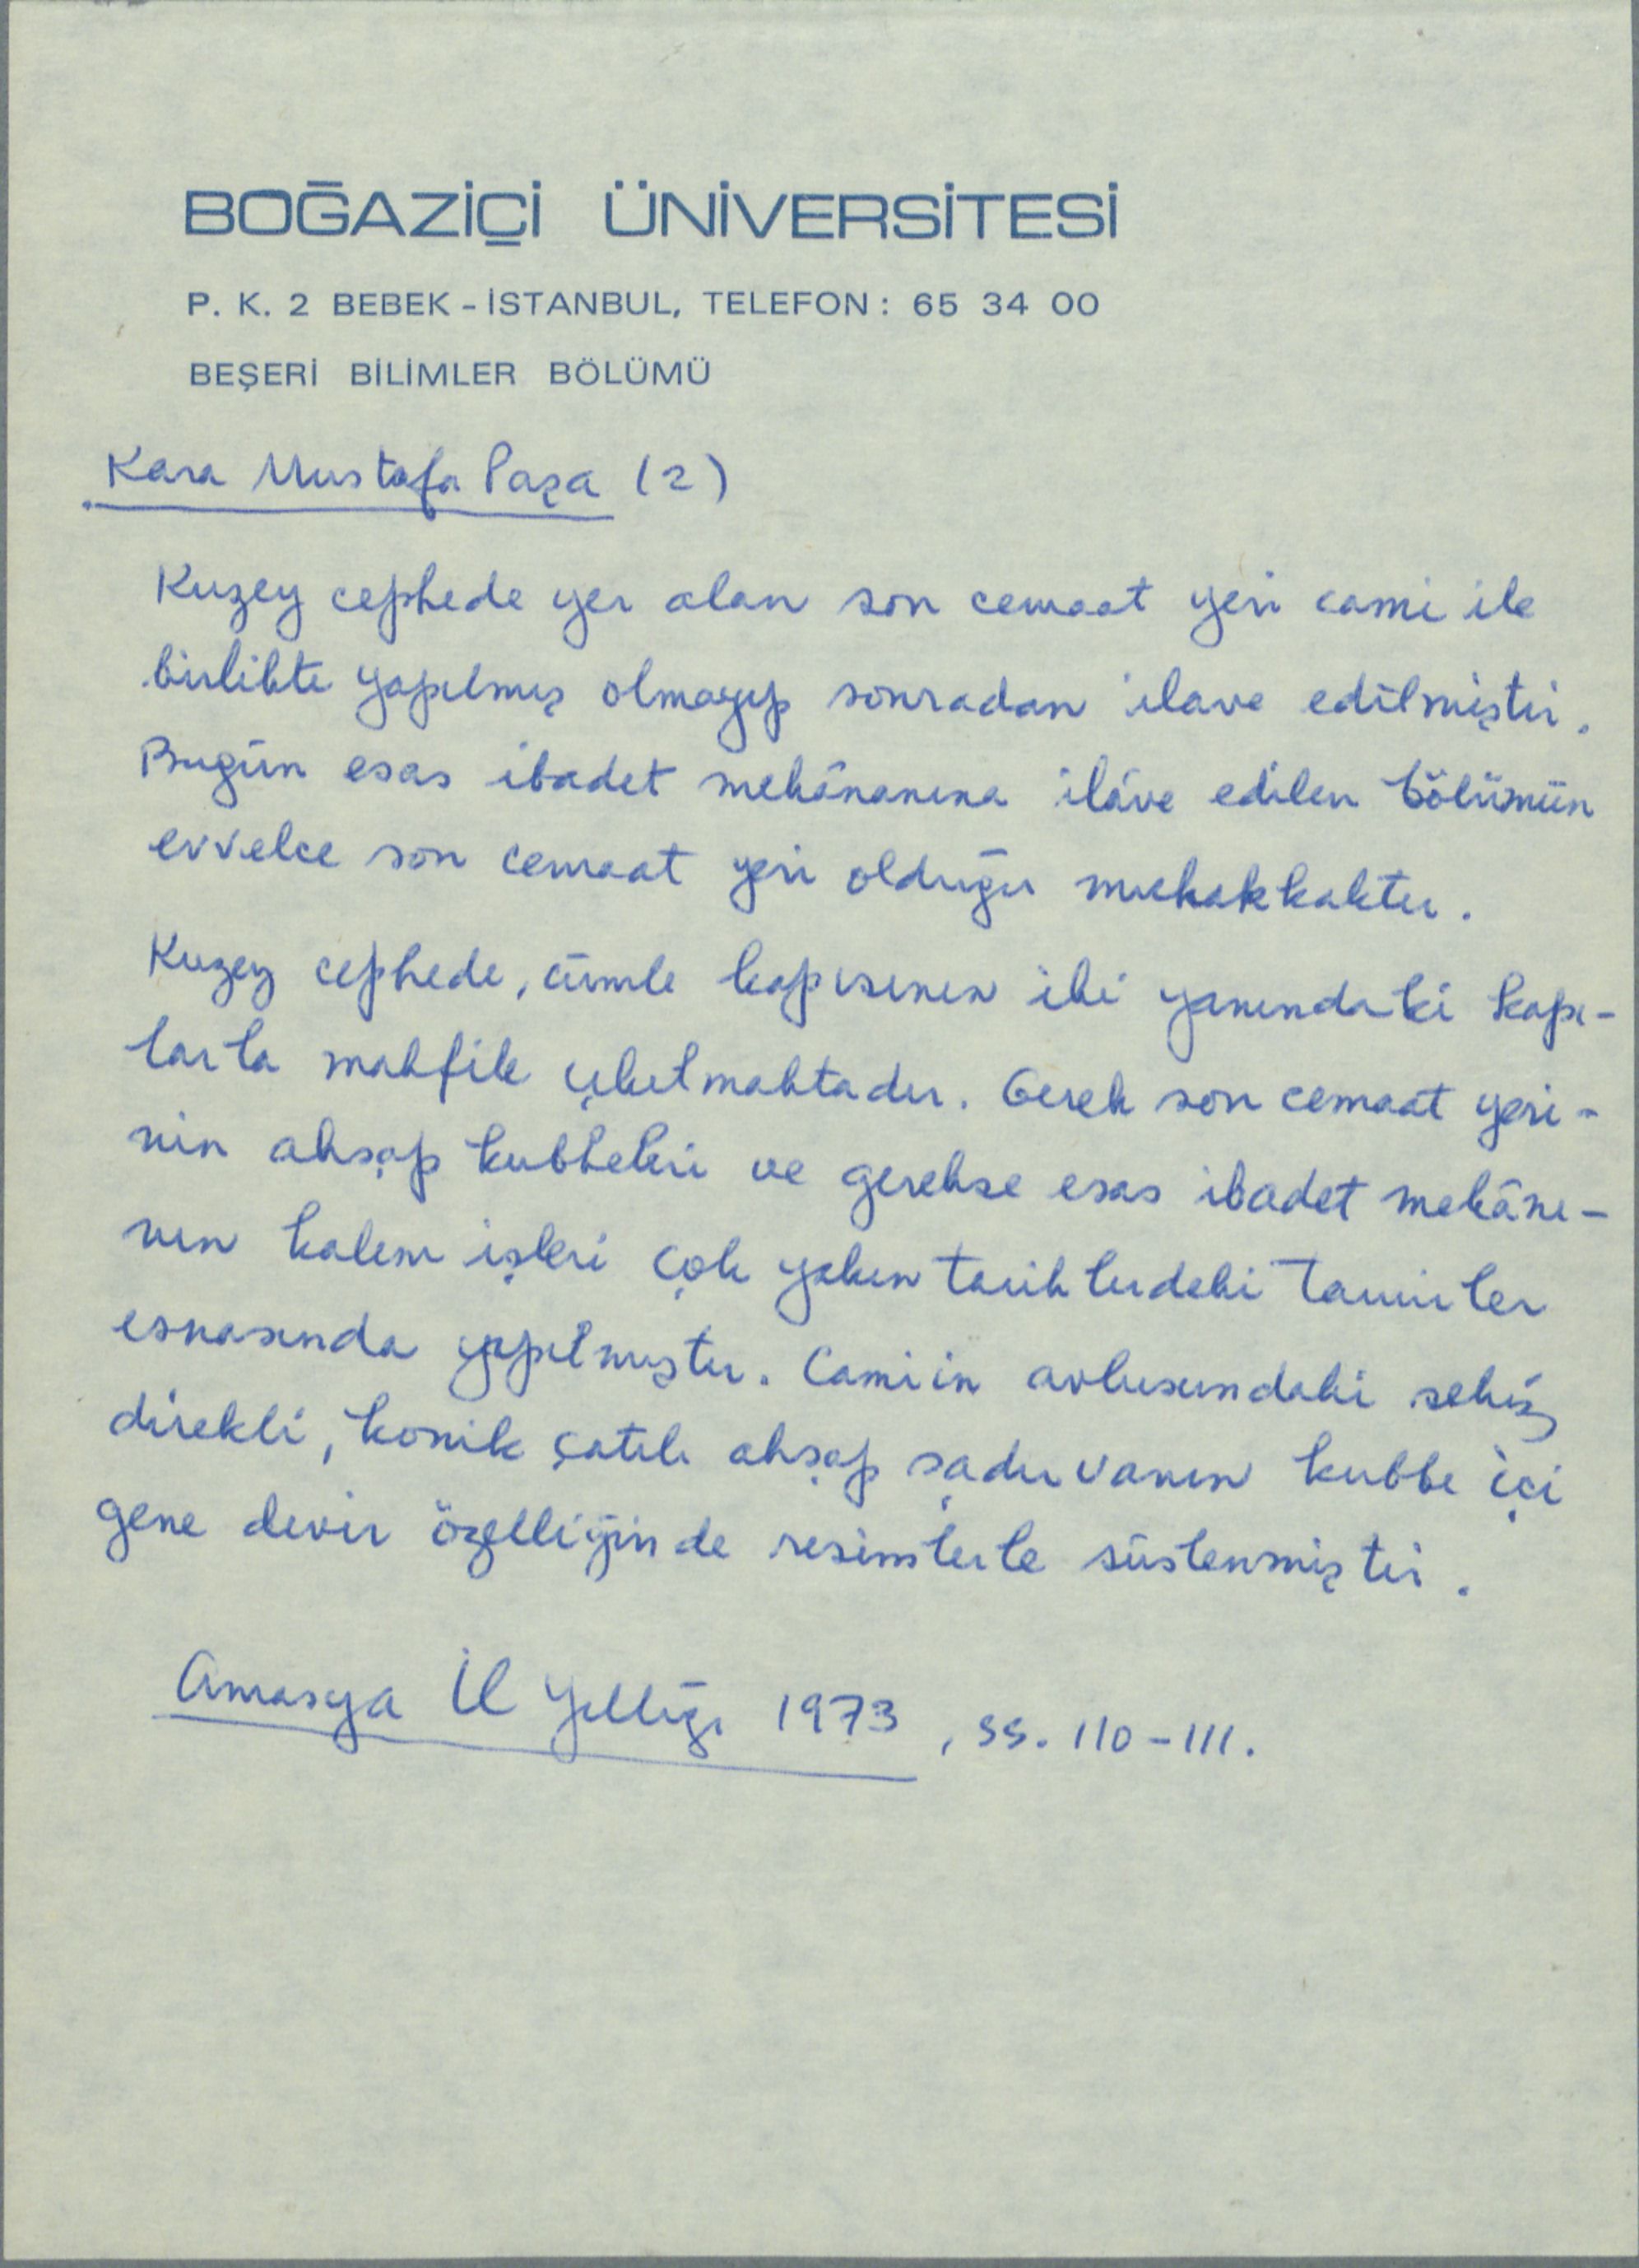 BOĞAZİÇİ ÜNİVERSİTESİ
P. K. 2 BEBEK - İSTANBUL, TELEFON : 65 34 00
BEŞERİ BİLİMLER BÖLÜMÜ
Kara Mustafa Paşa (2)
Kuzey cephede yer alan son cemaat yeri cami ile
birlikte yapılmış olmayıp sonradan ilave edilmiştir.
Bugün esas ibadet mekânanına ilâve edilen bölümün
evvelce son cemaat yeri olduğu muhakkaktır.
Kuzey cephede, cümle kapısının iki yanındaki kapı-
larla mahfile çıkılmaktadır. Gerek son cemaat yeri-
nin ahşap kubbeleri ve gerekse esas ibadet mekânı-
nın kalem işleri çok yakın tarihlerdeki tamirler
esnasında yapılmıştır. Camiin avlusundaki sekiz
direkli, konik çatılı ahşap şadırvanın kubbe içi
gene devir özelliğinde resimlerle süslenmiştir.
Amasya İl Yıllığı 1973, ss. 110-111.